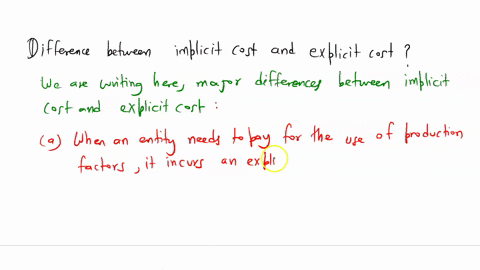 Difference between implicit cost and explicit cost ?
We are writing here, major differences between implicit
cost and explicit cost :
(a) When an entity needs to pay for the use of production
factors, it incurs an expli